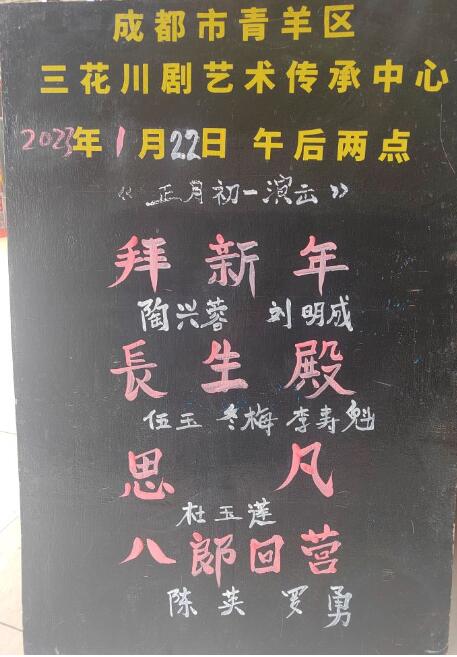 成都市青羊区
三花川剧艺术传承中心
2023年1月22日 午后两点
《正月初一演出》
拜新年
陶兴蓉 刘明成
長生殿
伍玉 冬梅 李寿魁
思凡
杜玉莲
八郎回营
陈英 罗勇